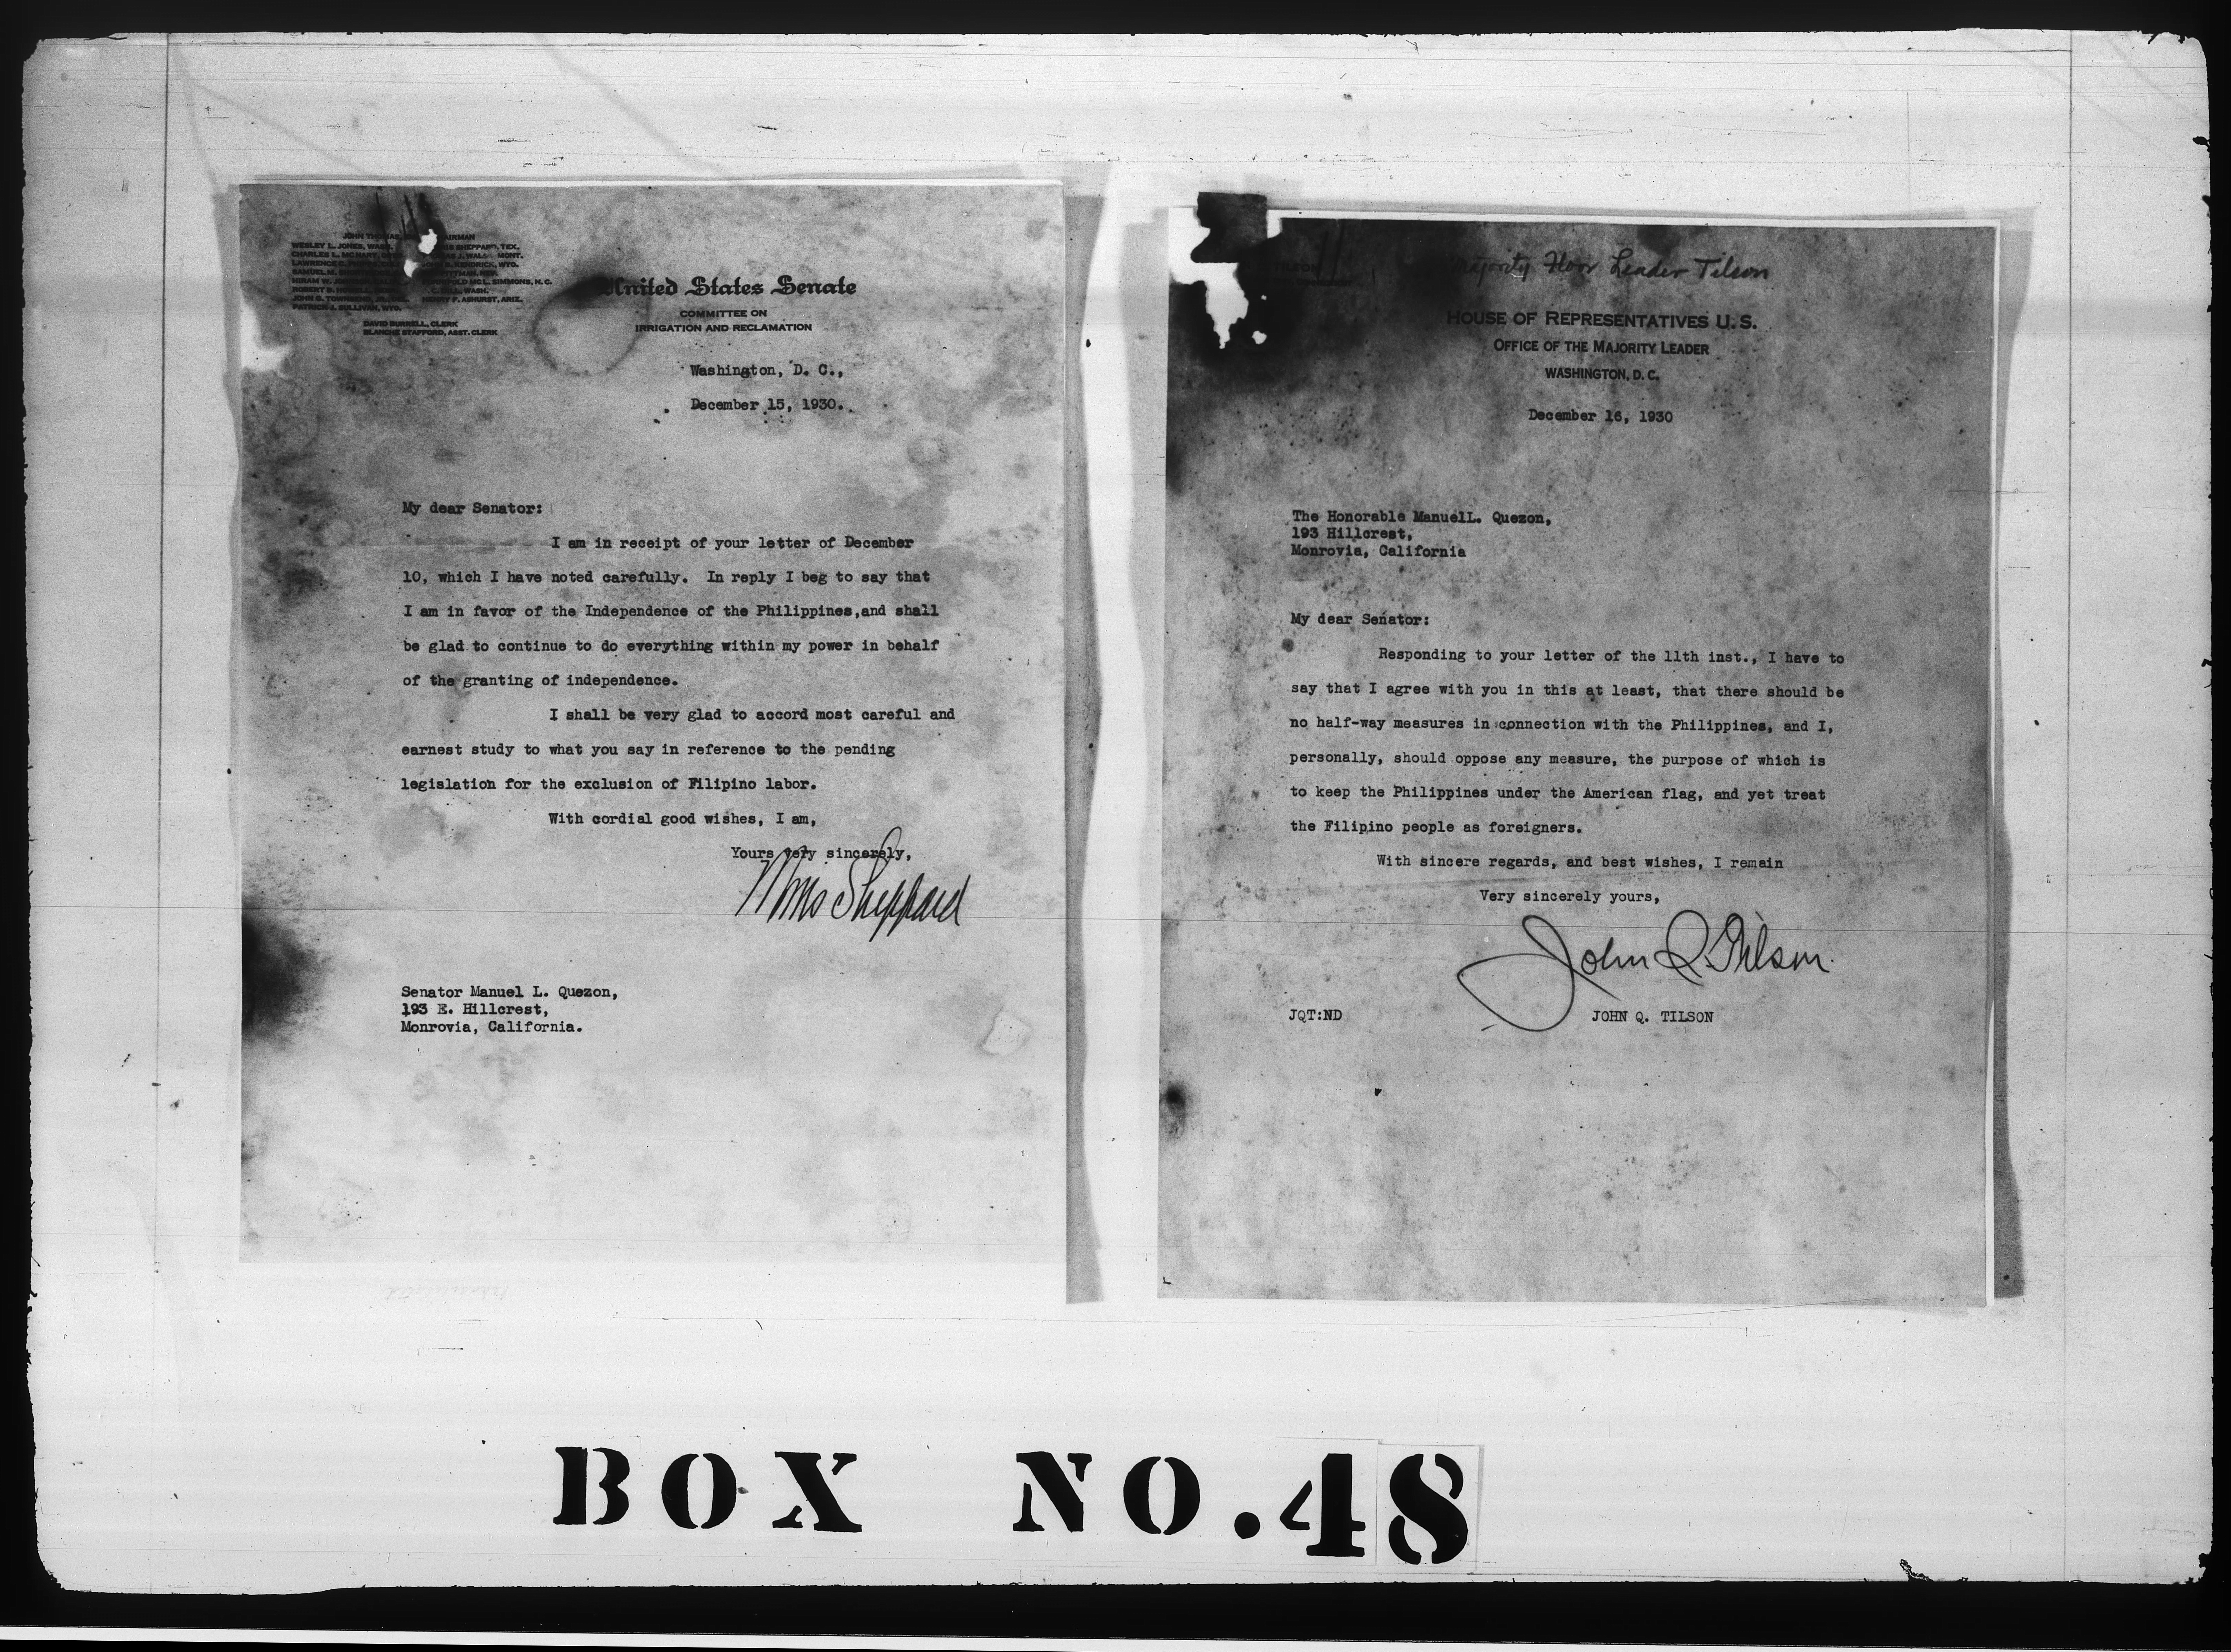 JOHN THOMAS
WESLEY L. JONES, WASH. SHEPPARD, TEX.
CHARLES L. MCNARY, J. WALSH MONT.
LAWRENCE KENDRICK, WYO.
SAMUEL M.
HIRAM W. MCL. SIMMONS, N.C.
ROBERT B. WASH.
JOHN G. TOWNSEND, JR. HENRY F. ASHURST, ARIZ.
PATRICK J. SULLIVAN, WYO.
DAVID BURRELL, CLERK
BLANCHE STAFFORD, ASST. CLERK
United States Senate
COMMITTEE ON
IRRIGATION AND RECLAMATION
Washington, D. C.,
December 15, 1930.
My dear Senator:
I am in receipt of your letter of December
10, which I have noted carefully. In reply I beg to say that
I am in favor of the Independence of the Philippines,and shall
be glad to continue to do everything within my power in behalf
of the granting of independence.
I shall be very glad to accord most careful and
earnest study to what you say in reference to the pending
legislation for the exclusion of Filipino labor.
With cordial good wishes, I am,
Yours very sincerely,
Morris Sheppard
Senator Manuel L. Quezon,
193 E. Hillcrest,
Monrovia, California.
Majority Floor Leader Tilson
HOUSE OF REPRESENTATIVES U.S.
OFFICE OF THE MAJORITY LEADER
WASHINGTON, D.C.
December 16, 1930
The Honorable ManuelL. Quezon,
193 Hillcrest,
Monrovia, California
My dear Senator:
Responding to your letter of the 11th inst., I have to
say that I agree with you in this at least, that there should be
no half-way measures in connection with the Philippines, and I,
personally, should oppose any measure, the purpose of which is
to keep the Philippines under the American flag, and yet treat
the Filipino people as foreigners.
With sincere regards, and best wishes, I remain
Very sincerely yours,
John Q. Tilson
JQT:ND JOHN Q. TILSON
BOX NO.48